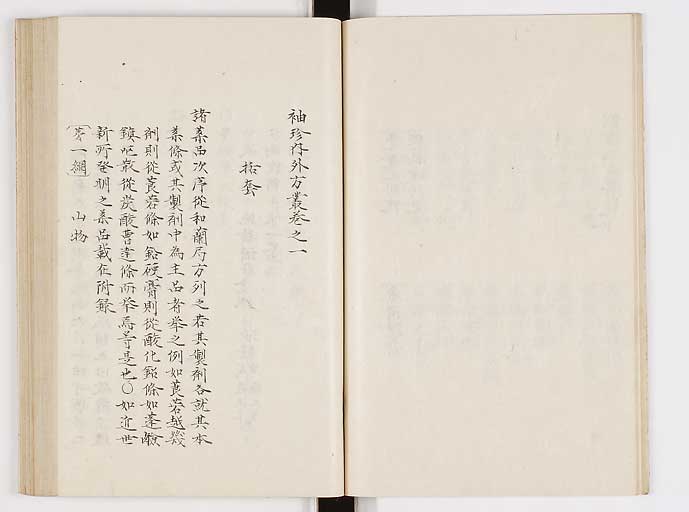 袖珍内外方叢巻之一
括套
諸薬品次序従和蘭局方列之若其製剤各就其本
薬條或其製剤中為主品者挙之例如莨菪越幾
剤則従莨菪條如鉛硬膏則従酸化鉛條如蓬酸
鎮嘔散従炭酸曹達條所挙焉等是也〇如近世
新所発明之薬品載在附録
第一綱 山物